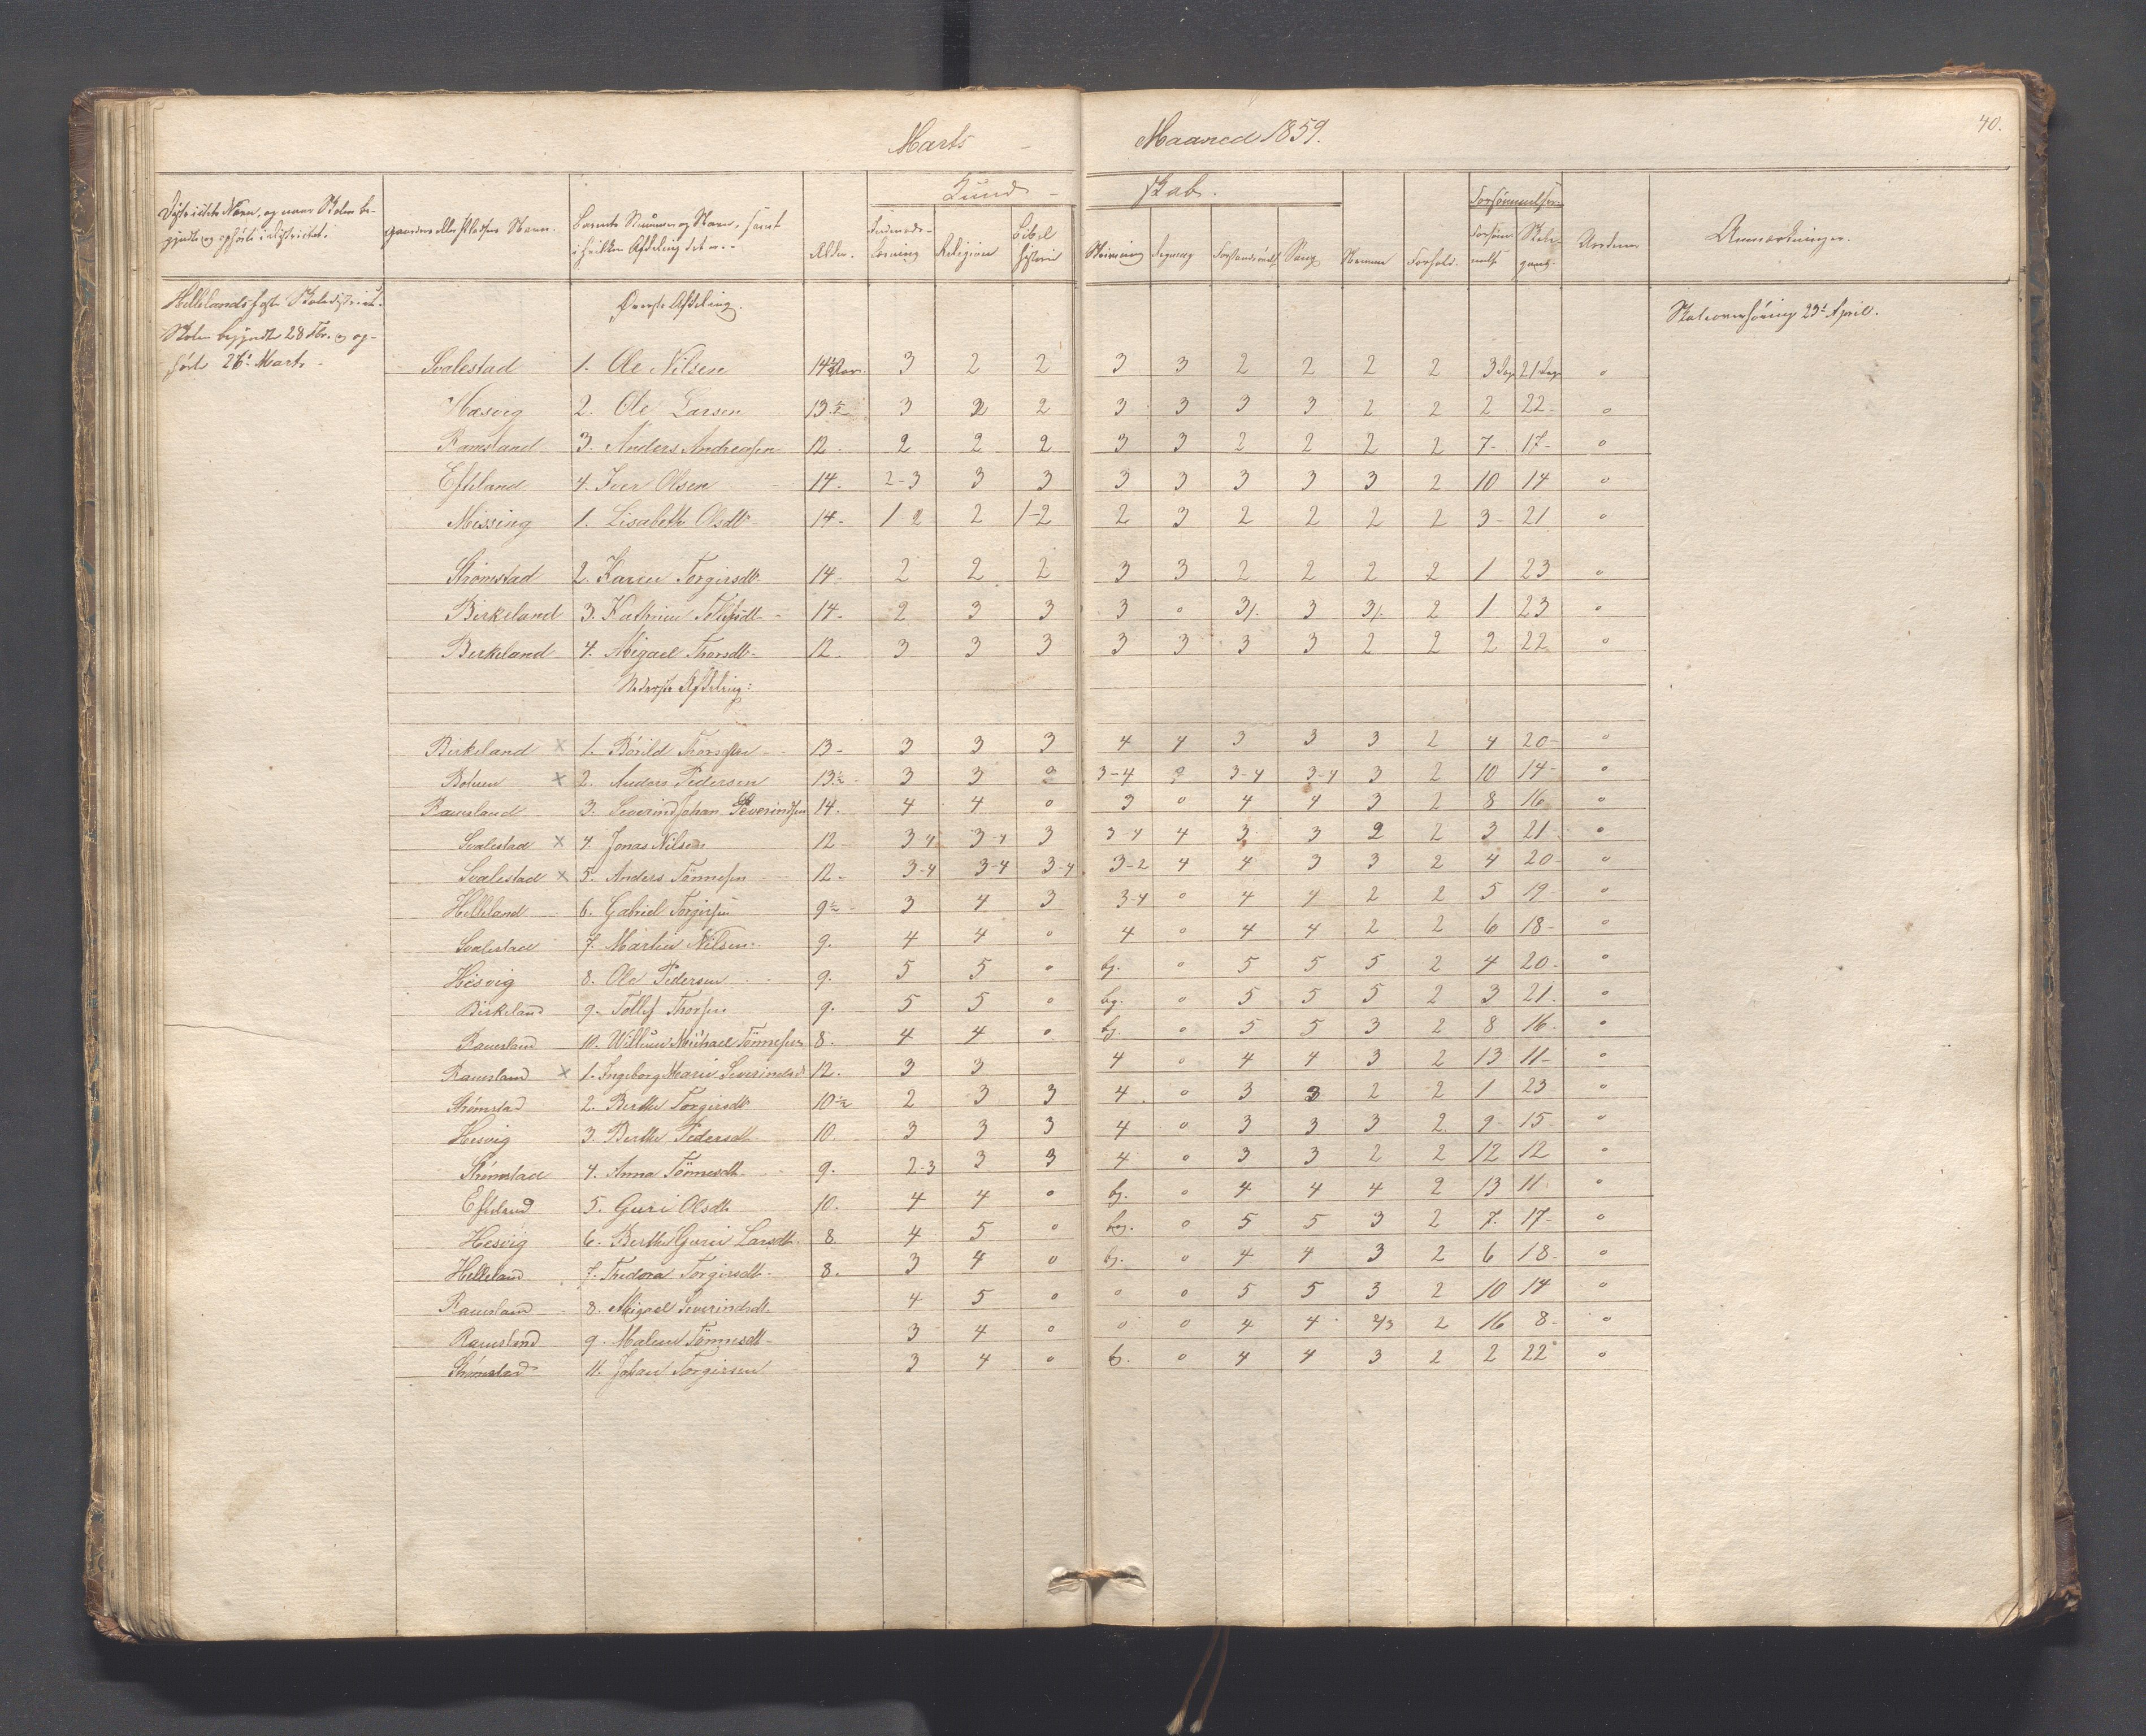 Marts – Maaned 1859. 40.
Districtets Navn, og naar Skolen be-
gyndte og ophørte i Districtet.
Gaardens eller Pladsens Navn.
Barnets Nummer og Navn, samt
i hvilken Afdeling det er.
Alder.
Kund – skab.
Religion
Bibel
historie
Skrivning
Regning
Sang
Forhold.
Forsømmelser
Forsøm-
melse
Skole-
gang.
Anmærkninger.
Hellelands faste Skoledistrict.
Skolen begyndte 28 Febr. og op-
hørte 26' Marts.
Øverste Afdeling.
Skoleoverhøring 23' April.
Svalestad 1. Ole Nilsen 14½ Aar. 3 2 2 3 3 2 2 2 2 3 Dage 21 Dage 0
Hæsvig 2. Ole Larsen 13½ 3 2 2 3 3 3 3 2 2 2 22 0
Ramsland 3. Anders Andreassen 12 2 2 2 3 3 2 2 2 2 7 17 0
Efteland 4. Iver Olsen 14 2-3 3 3 3 3 3 3 3 2 10 14 0
Missing 1. Lisabeth Olsdt 14 1 2 2 1-2 2 3 2 2 2 2 3 21 0
Strømstad 2. Karen Torgirsdt 14 2 2 2 3 3 2 2 2 2 1 23 0
Birkeland 3. Kathrine Tollefsdt 14 2 3 3 3 0 3/. 3 3/. 2 1 23 0
Birkeland 4. Abigael Thorsdt 12 3 3 3 3 3 3 3 2 2 2 22 0
Nederste Afdeling:
Birkeland × 1. Børild Thorsen 13 3 3 3 4 4 3 3 3 2 4 20 0
× 2. Anders Pedersen 13½ 3 3 3 3-4 3-4 3-4 3 2 10 14 0
Ramsland 3. Severind Johan Severindsen 14. 4 4 0 3 0 4 4 3 2 8 16 0
Svalestad × 4. Jonas Nilsen 12 3-4 3-4 3 3-4 4 3 3 2 2 3 21 0
Svalestad × 5. Anders Tönnesen 12 3-4 3-4 3-4 3-2 4 4 3 3 2 4 20 0
Helleland 6. Gabriel Torgirsen 9½ 3 4 3 3-4 0 4 4 2 2 5 19 0
Svalestad 7. Martin Nilsen 9. 4 4 0 4 0 4 4 2 2 6 18 0
Hesvig 8. Ole Pedersen 9. 5 5 0 bg. 0 5 5 5 2 4 20 0
Birkeland 9. Tollef Thorsen 9. 5 5 0 bg. 0 5 5 5 2 3 21 0
Ramsland 10. Willum Michael Tönnesen 8. 4 4 0 bg. 0 5 5 3 2 8 16 0
Ramsland × 1. Ingeborg Marie Severindsdt 12. 3 3 4 0 4 4 3 2 13 11 0
Strømstad 2. Berthe Torgirsdt 10½ 2 3 3 4 0 3 3 2 2 1 23 0
Hesvig 3. Berthe Pedersdt 10. 3 3 3 4 0 3 3 3 2 9 15 0
Strømstad 4. Anna Tönnesdt. 9. 2-3 3 3 4 0 3 3 2 2 12 12 0
Efteland 5. Guri Olsdt. 10. 4 4 0 bg. 0 4 4 4 2 13 11 0
Hesvig 6. Berthe Gurie Larsdt. 8 4 5 0 bg. 0 5 5 3 2 7. 17 0
Helleland 7. Thedora Torgirsdt. 8. 3 4 0 bg. 0 4 4 3 2 6 18 0
Ramsland 8. Abigael Severindsdt. 4 5 0 0 0 5 5 3 2 10 14 0
Ramsland 9. Malene Tönnesdt 3 4 0 0 0 4 4 2/3 2 16 8 0
Strømstad 11. Johan Torgirsen 3 4 0 b. 0 4 4 3 2 2 22 0